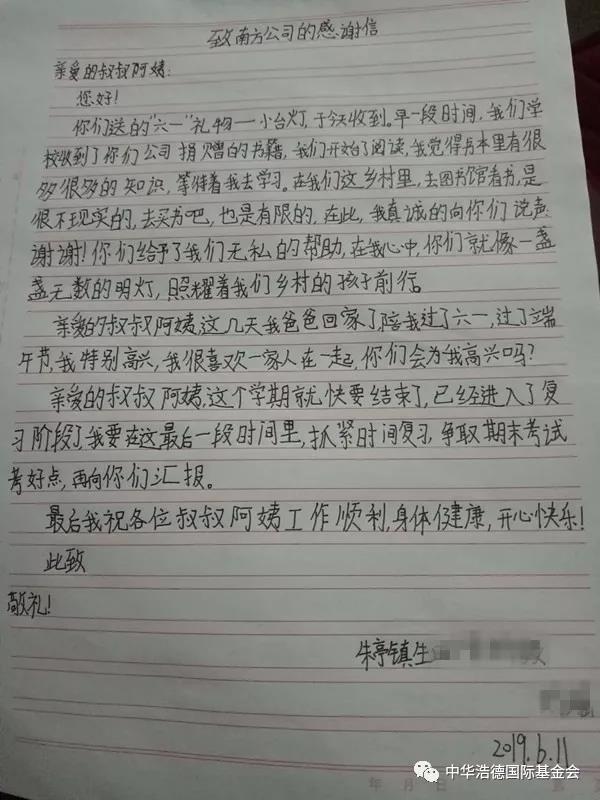 致南方公司的感谢信
亲爱的叔叔阿姨:
您好!
你们送的“六一”礼物一小台灯,于今天收到。早一段时间,我们学
校收到了你们公司捐赠的书籍,我们开始了阅读,我觉得书本里有很
多很多的知识,等待着我去学习。在我们这乡村里,去图书馆看书,是
很不现实的,去买书吧,也是有限的,在此,我真诚的向你们说声
谢谢!你们给予了我们无私的帮助,在我心中,你们就像一盏
盏无数的明灯,照耀着我们乡村的孩子前行。
亲爱的叔叔阿姨,这几天我爸爸回家了,陪我过了六一,过了端
午节,我特别高兴,我很喜欢一家人在一起,你们会为我高兴吗?
亲爱的叔叔阿姨,这个学期就快要结束了,已经进入了复
习阶段了,我要在这最后一段时间里,抓紧时间复习,争取期末考试
考好点,再向你们汇报。
最后我祝各位叔叔阿姨工作顺利,身体健康,开心快乐!
此致
敬礼!
朱亭镇生
2019.6.11
年 月 日
中华浩德国际基金会